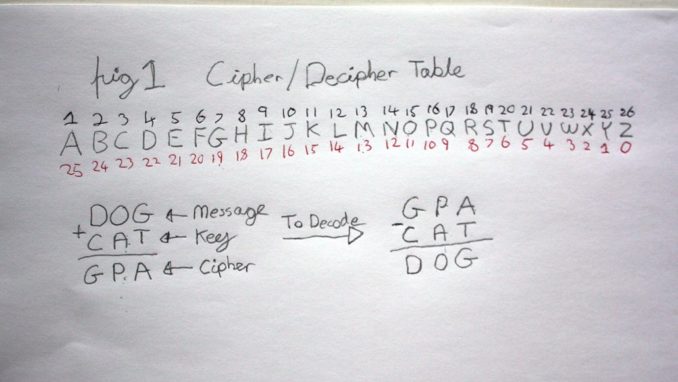 fig 1 Cipher/Decipher Table
1 2 3 4 5 6 7 8 9 10 11 12 13 14 15 16 17 18 19 20 21 22 23 24 25 26
A B C D E F G H I J K L M N O P Q R S T U V W X Y Z
25 24 23 22 21 20 19 18 17 16 15 14 13 12 11 10 9 8 7 6 5 4 3 2 1 0
DOG ← Message
+ CAT ← Key
GPA ← Cipher
To Decode →
GPA
- CAT
DOG